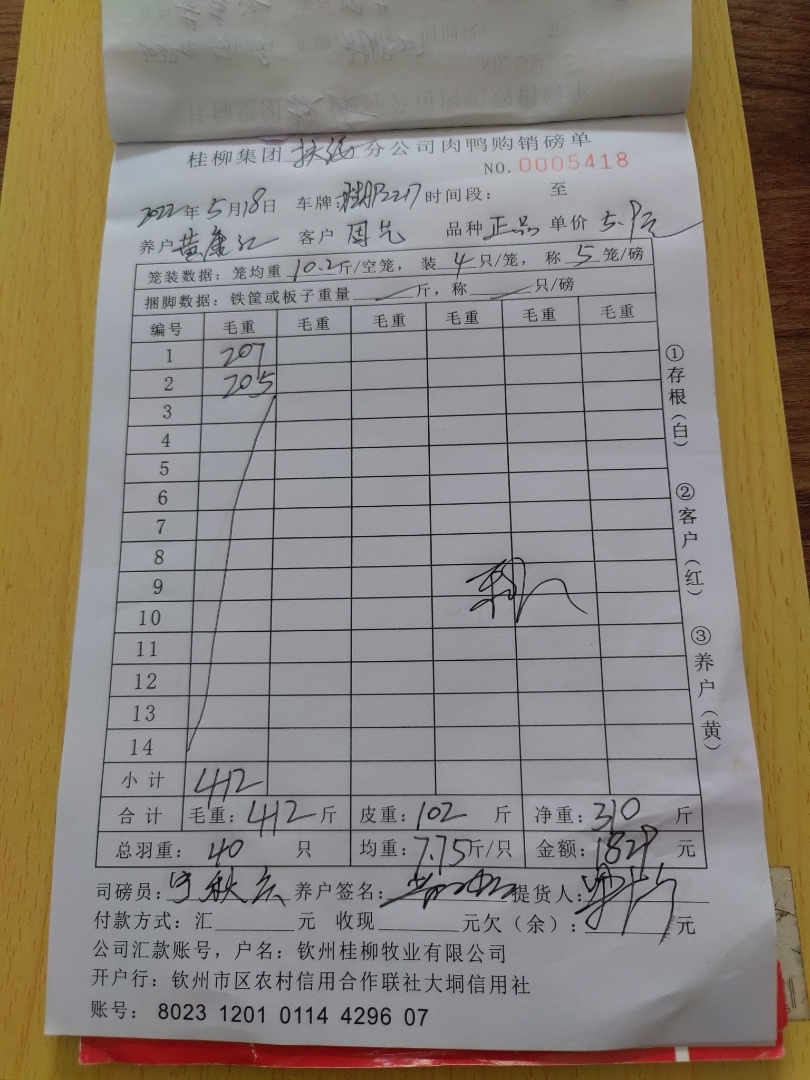 桂柳集团扶绥分公司肉鸭购销磅单
NO. 0005418
2022年5月18日 车牌: 时间段: 至
养户 黄康 客户 周 品种 正品 单价 5.9元
笼装数据：笼均重10.2斤/空笼，装4只/笼，称5笼/磅
捆脚数据：铁筐或板子重量 斤，称 只/磅
编号 毛重 毛重 毛重 毛重 毛重 毛重
1 207
2 205
3
4
5
6
7
8
9
10
11
12
13
14
小计 412
合计 毛重：412斤 皮重：102 斤 净重：310 斤
总羽重：40 只 均重：7.75斤/只 金额：1829 元
司磅员： 养户签名： 提货人：
付款方式：汇 元 收现 元欠（余）： 元
公司汇款账号，户名：钦州桂柳牧业有限公司
开户行：钦州市区农村信用合作联社大垌信用社
账号： 8023 1201 0114 4296 07
①存根（白）
②客户（红）
③养户（黄）